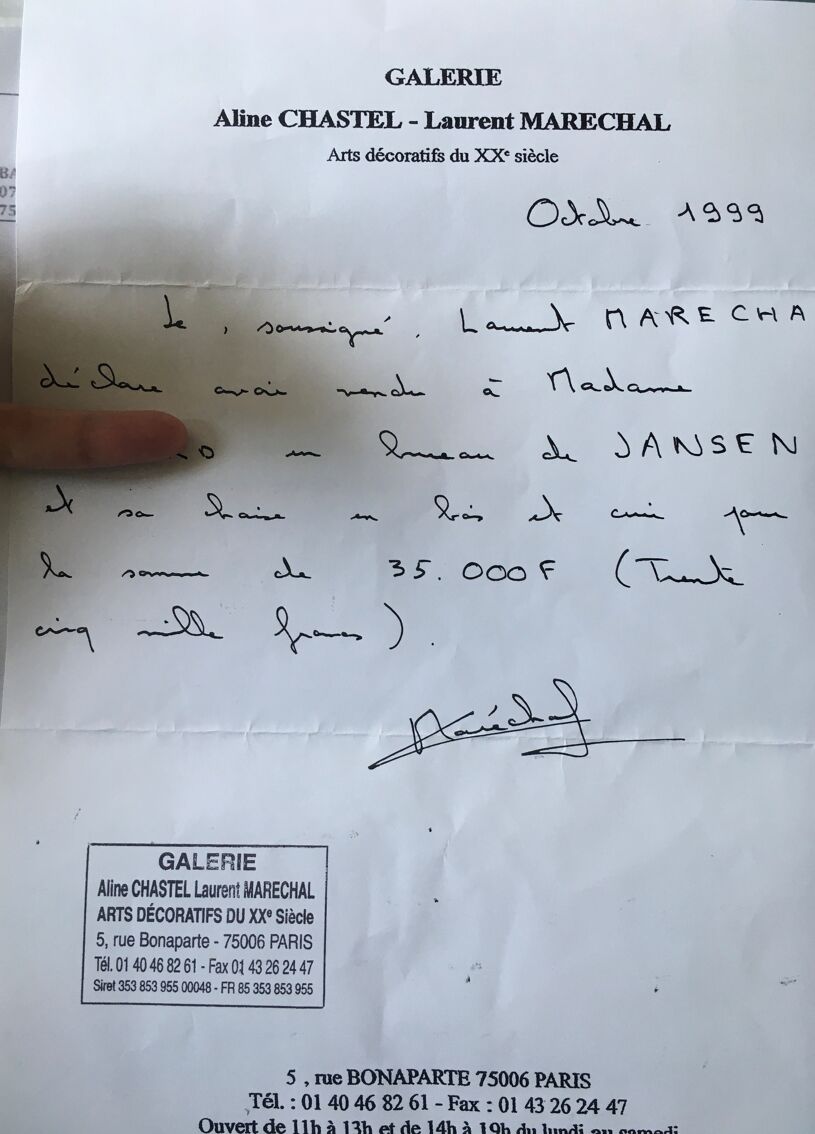 BA
07
75
GALERIE
Aline CHASTEL - Laurent MARECHAL
Arts décoratifs du XXe siècle
Octobre 1999
Je, soussigné, Laurent MARECHA
déclare avoir vendu à Madame
o un bureau de JANSEN
et sa chaise en bois et cuir pour
la somme de 35.000F (Trente
cinq mille francs).
Maréchal
GALERIE
Aline CHASTEL Laurent MARECHAL
ARTS DÉCORATIFS DU XXe Siècle
5, rue Bonaparte - 75006 PARIS
Tél. 01 40 46 82 61 - Fax 01 43 26 24 47
Siret 353 853 955 00048 - FR 85 353 853 955
5 , rue BONAPARTE 75006 PARIS
Tél. : 01 40 46 82 61 - Fax : 01 43 26 24 47
Ouvert de 11h à 13h et de 14h à 19h du lundi au samedi